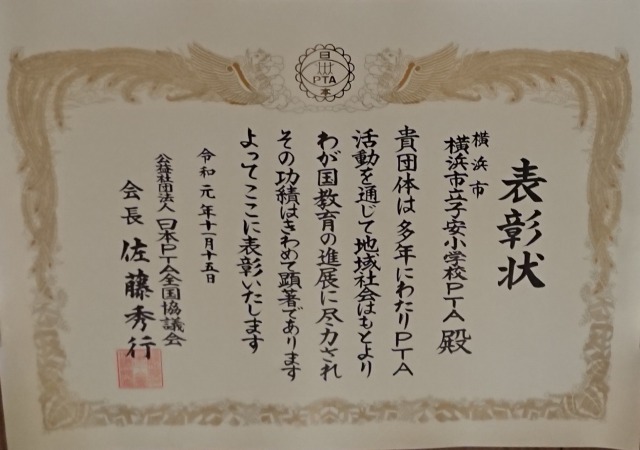 日
PTA
表彰状
横浜市
横浜市立子安小学校PTA 殿
貴団体は多年にわたりPTA
活動を通じて地域社会はもとより
わが国教育の進展に尽力され
その功績はきわめて顕著であります
よってここに表彰いたします
令和元年十一月十五日
公益社団法人 日本PTA全国協議会
会長 佐藤秀行